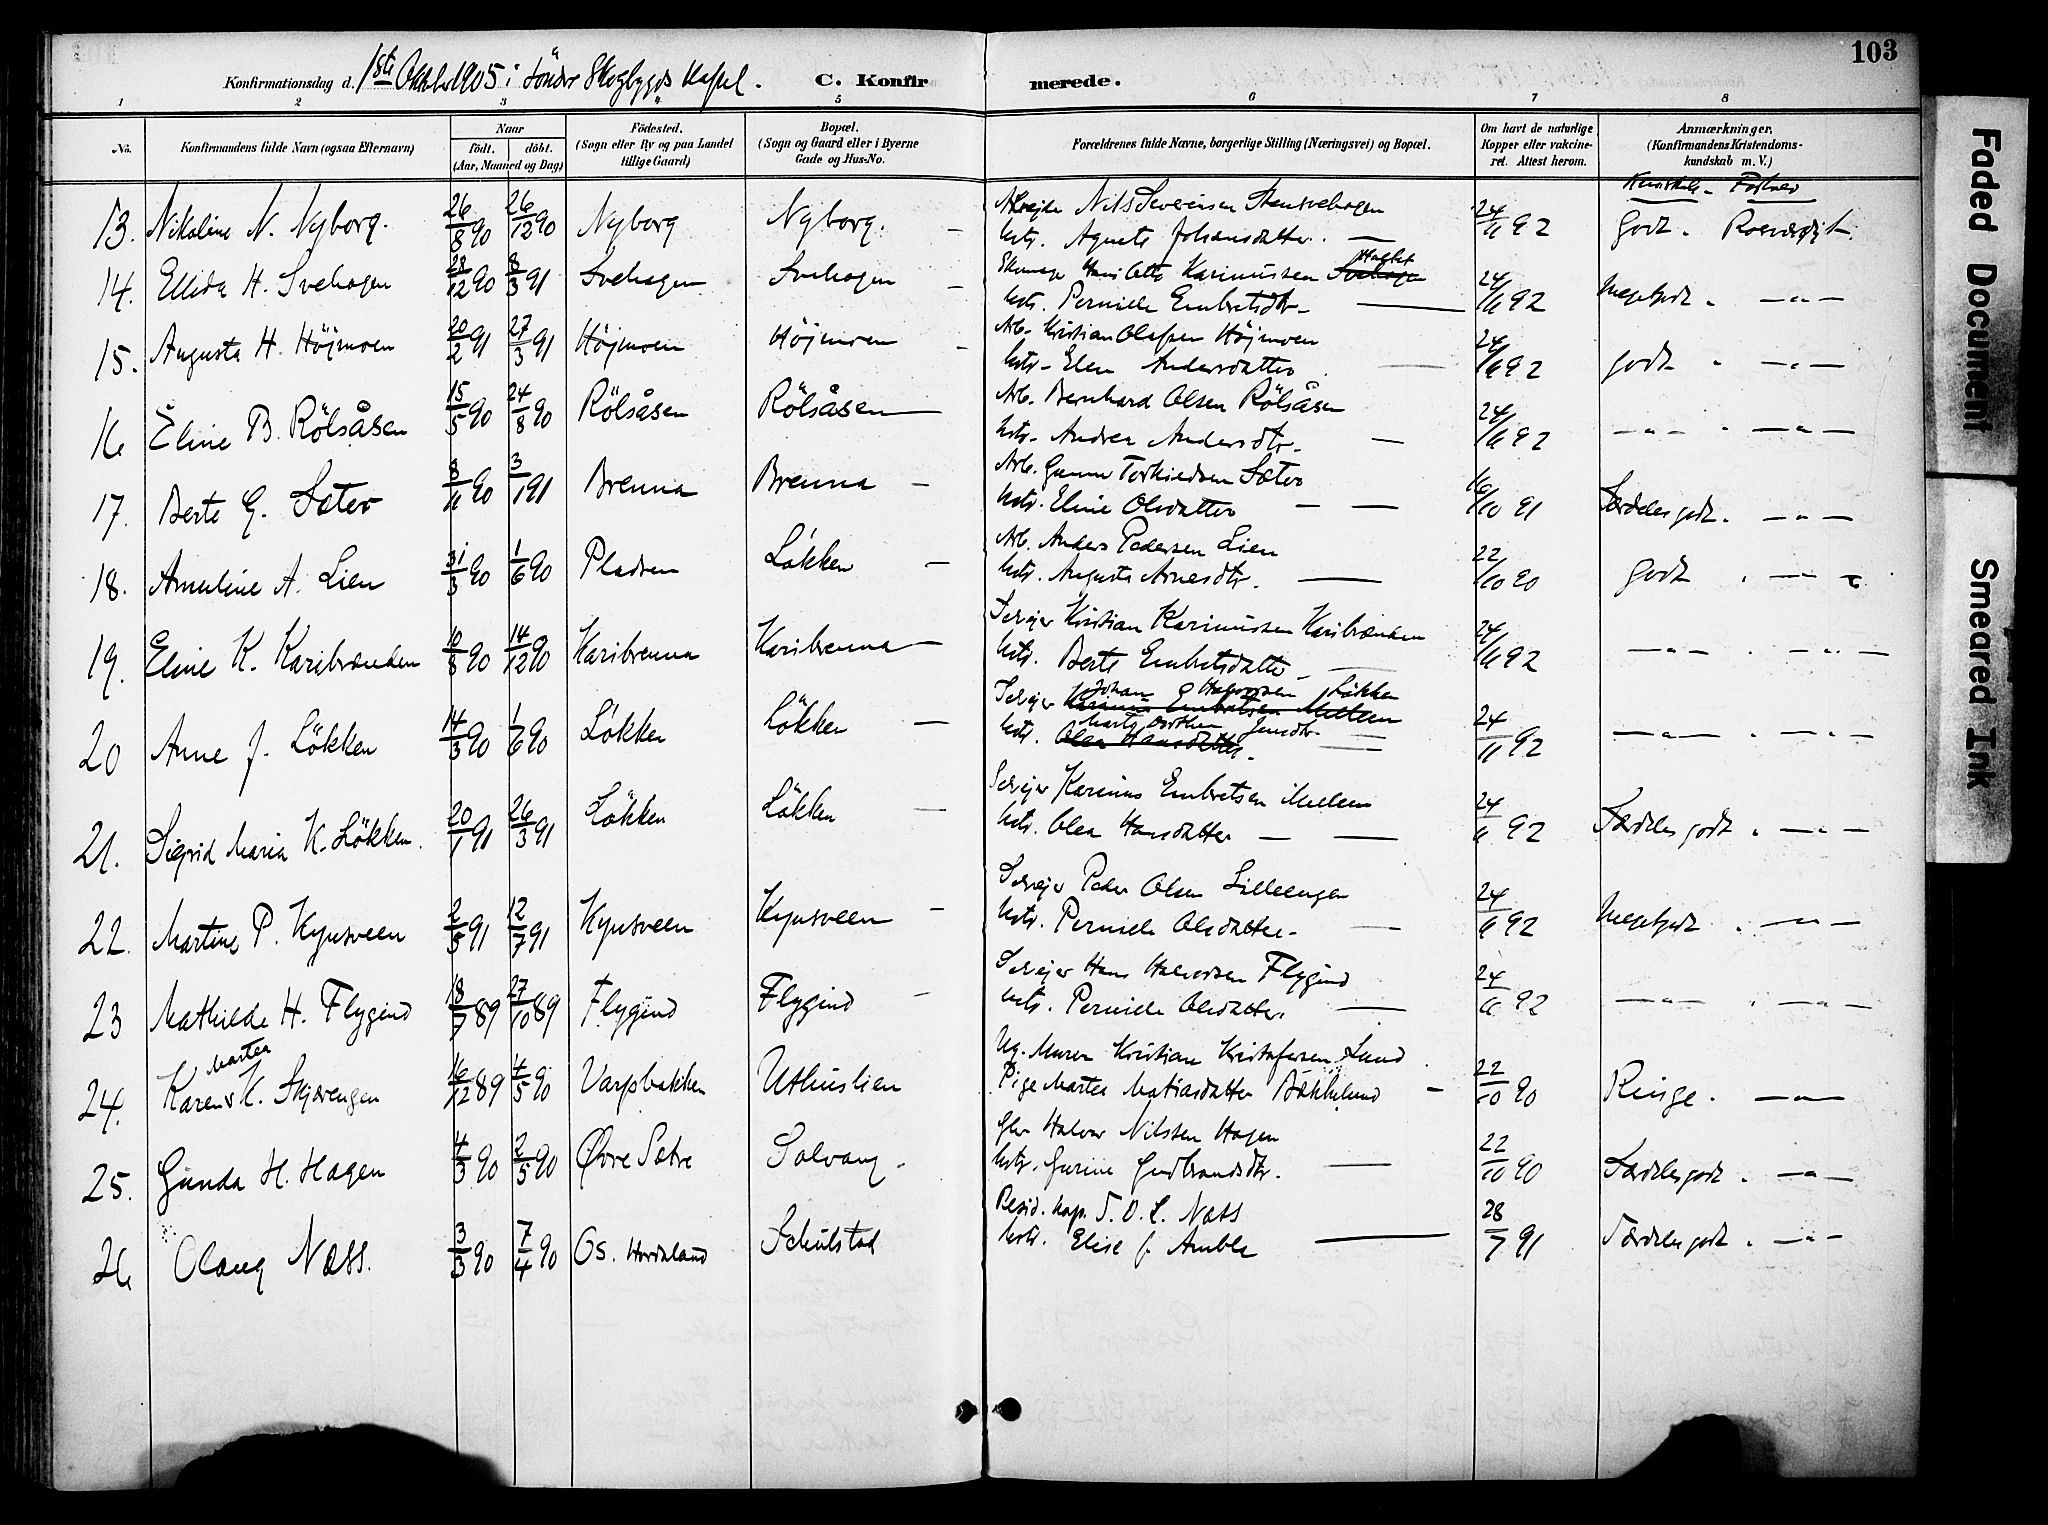 103
Konfirmationsdag d. 1ste Oktober 1905 i Söndre Skogbygds Kapel. C. Konfirmerede.
1 2 3 4 5 6 7 8
No. Konfirmandens fulde Navn (ogsaa Efternavn) Naar födt. döbt. (Aar, Maaned og Dag) Födested. (Sogn eller By og paa Landet tillige Gaard) Bopæl. (Sogn og Gaard eller i Byerne Gade og Hus-No.) Forældrenes fulde Navne, borgerlige Stilling (Næringsvei) og Bopæl. Om havt de naturlige Kopper eller vaccineret. Attest herom. Anmærkninger, (Konfirmandens Kristendomskundskab m. V.)
Kundskab - Forhold
13. Nikoline N. Nyborg. 26/8 90 26/12 90 Nyborg Nyborg. - Arbejder Nils Severinsen Stensvehagen
Hstr. Agnete Johansdatter. — 24/6 92 Godt. Rosværdigt.
14. Ellida H. Svehagen 28/12 90 8/3 91 Svehagen Svehagen - Skomager Hans Otto Karinussen Svehagen
Hstr. Pernille Embretsdtr. — 24/6 92 Megetgodt. —„—
15. Augusta H. Höjmoen 20/2 91 27/3 91 Höjmoen Höjmoen - Arb. Kristian Olafsen Höjmoen
Hstr. Elen Andersdatter. — 24/6 92 godt „ —„—
16 Eline B. Rölsåsen 15/5 90 24/8 90 Rölsåsen Rölsåsen — Arb. Bernhard Olsen Rölsåsen
Hstr. Andrea Andersdtr. — 24/6 92 —„— „ —„—
17. Berte G. Sæter 8/11 90 3/1 91 Brenna Brenna - Arb. Gunnar Torkildsen Sæter
Hstr. Eline Olsdatter — — 16/10 91 Særdeles godt. —„—
18. Amuline A. Lien 31/3 90 1/6 90 Pladsen Løkken - Arb. Anders Pedersen Lien
Hstr. Augusta Arnesdtr. — 22/10 90 godt . —„
19. Eline K. Karibrænden 10/8 90 14/12 90 Karibrenna Karibrenna — Selvejer Kristian Karinussen Karibrænden
Hstr. Berte Embretsdatter — 24/6 92 —„— . —„—
Johan Halvorsen Løkken
20 Anne J. Lökken 14/3 90 1/6 90 Løkken Lökken — Selvejer Karinus Embretsen Mellem
Marte Dorthea Jensdtr.
Hstr. Olea Hansdatter. — 24/11 92 —„— . —„—
21. Sigrid Maria K. Lökken. 20/1 91 26/3 91 Lökken Lökken — Selvejer Karinus Embretsen Mellem
Hstr. Olea Hansdatter — — 24/6 92 Særdeles godt „ —„—
22. Martine P. Kynsveen 2/5 91 12/7 91 Kynsveen Kynsveen - Selvejer Peder Olsen Lilleengen
Hstr. Pernille Olsdatter - — 24/6 92 Megetgodt . —„—
23 Mathilde H. Flygind 18/7 89 27/10 89 Flygind Flygind - Selvejer Hans Halvorsen Flygind
Hstr. Pernille Olsdatter. — 24/6 92 —„— „ —„—
Martea
24. Karen K. Skjørengen 16/12 89 4/5 90 Varpbakken Uthuslien Ug. Murer Kristian Kristofersen Lund
Pige Martea Matiasdatter Bækkelund — 22/10 90 Ringe. —„—
25. Gunda H. Hagen 4/3 90 2/5 90 Øvre Sætre Solvang. Gbr Halvor Nilsen Hagen
Hstr. Gurine Gudbrandsdtr. — 22/10 90 Særdeles godt . —„—
26 Olaug Næss. 3/3 90 7/4 90 Os. Hordaland Schulstad Resid. Kap. T. O. L. Næss
Hstr. Elise J. Amble — 28/7 91 Særdeles godt . —„—
Faded Document
Smeared Ink